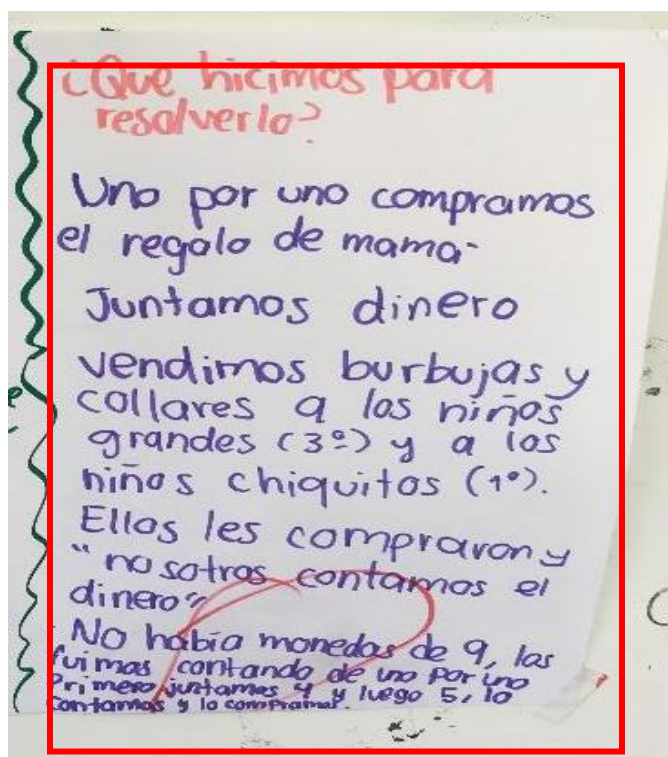 ¿Que hicimos para
resolverlo?
Uno por uno compramos
el regalo de mama.
Juntamos dinero
vendimos burbujas y
collares a los niños
grandes (3º) y a los
niños chiquitos (1º).
Ellos les compraron y
"nosotros contamos el
dinero"
No había monedas de 9, las
fuimos contando de uno por uno
Primero juntamos 4 y luego 5, lo
contamos y lo compramos.